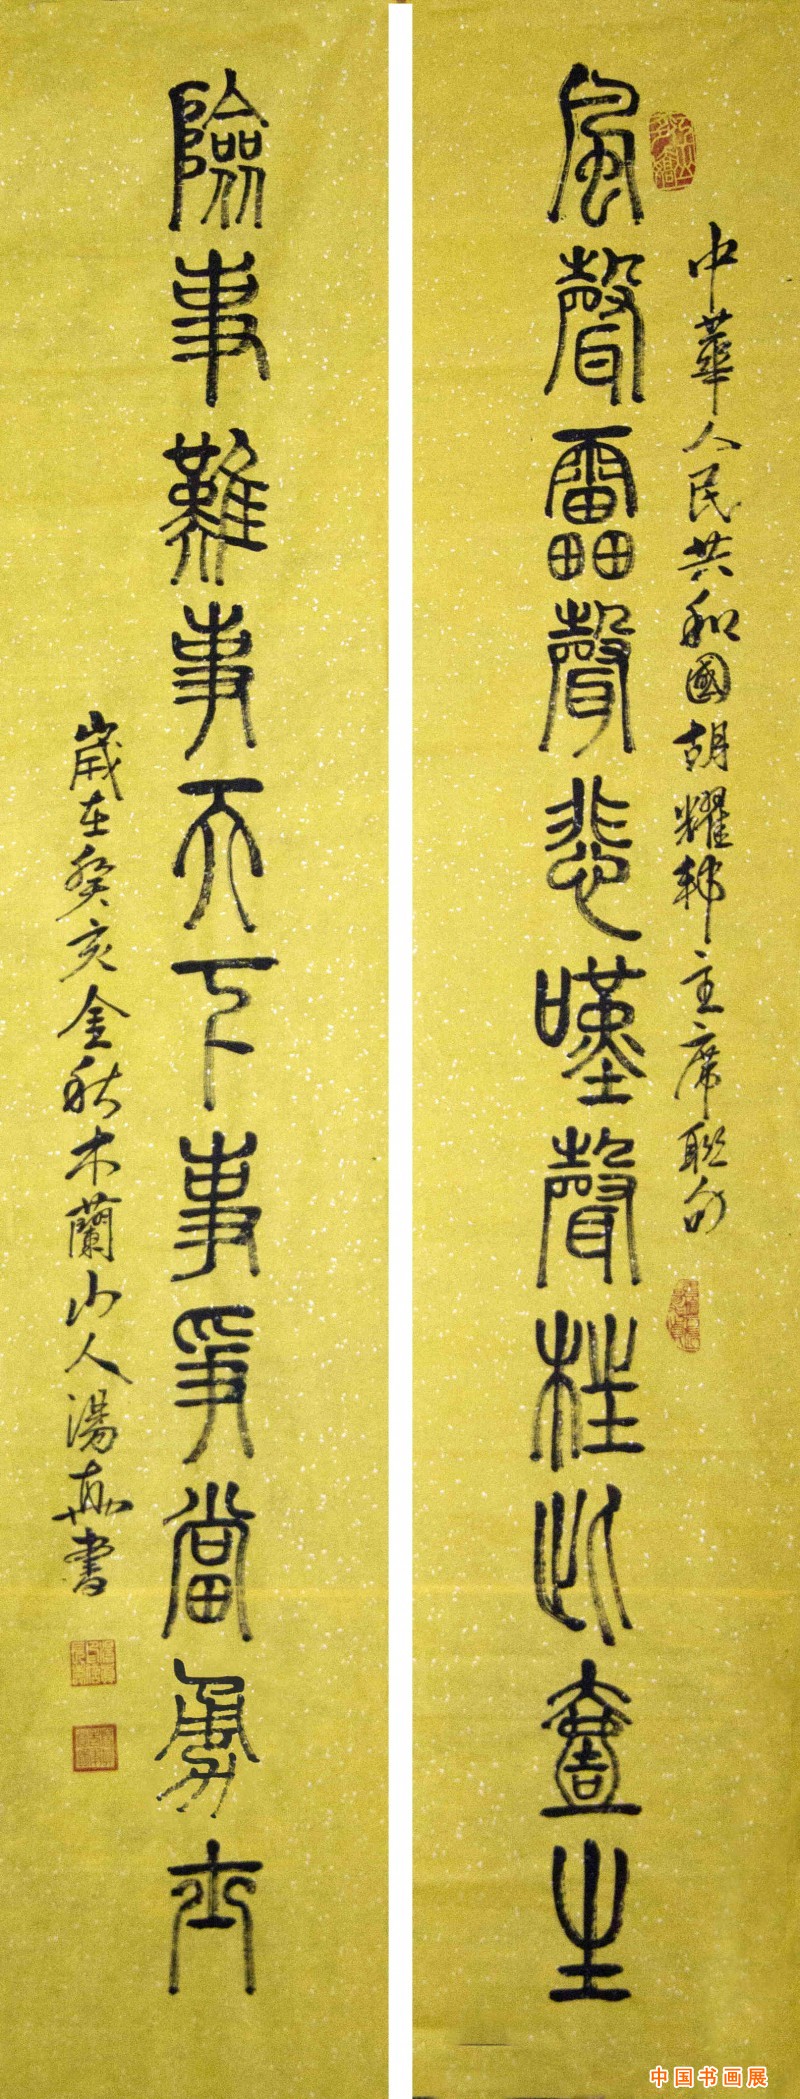 中華人民共和國胡耀邦主席聯句
風聲雷聲悲嘆聲枉此壹生
險事難事天下事爭當勇士
歲在癸亥金秋木蘭山人湯書
中国书画展